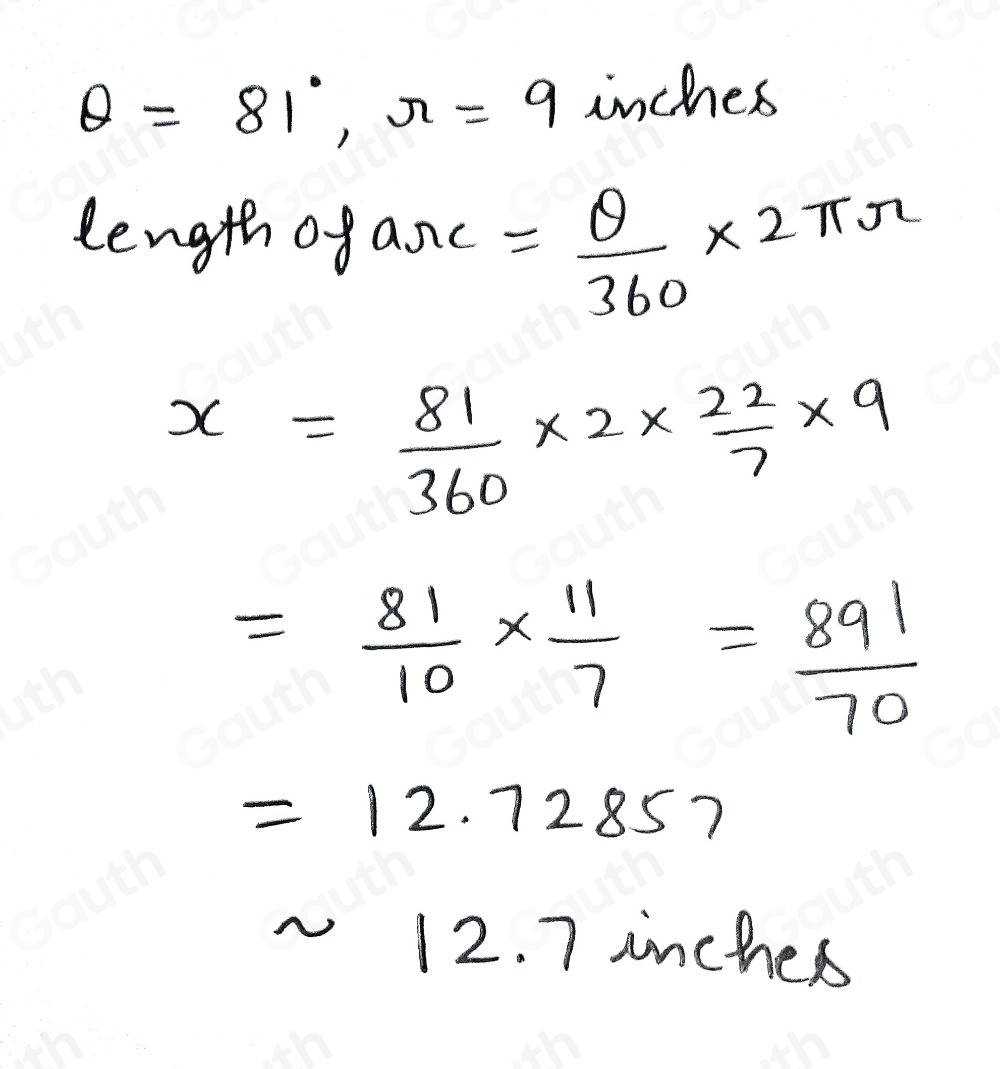 θ = 81°, r = 9 inches
length of arc = θ/360 × 2πr
x = 81/360 × 2 × 22/7 × 9
= 81/10 × 11/7 = 891/70
= 12.72857
~ 12.7 inches